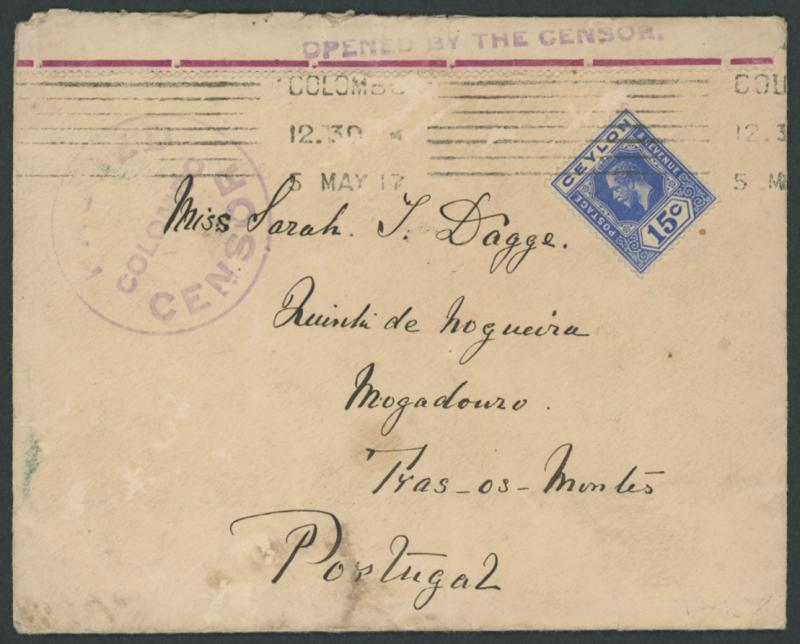 OPENED BY THE CENSOR.
COLOMBO COL
12.30 12.3
5 MAY 17 5 M
CEYLON
POSTAGE & REVENUE
15c
PASSED
COLOMBO
CENSOR
Miss Sarah. T. Dagge.
Quinta de Nogueira
Mogadouro.
Tras-os-Montes
Portugal